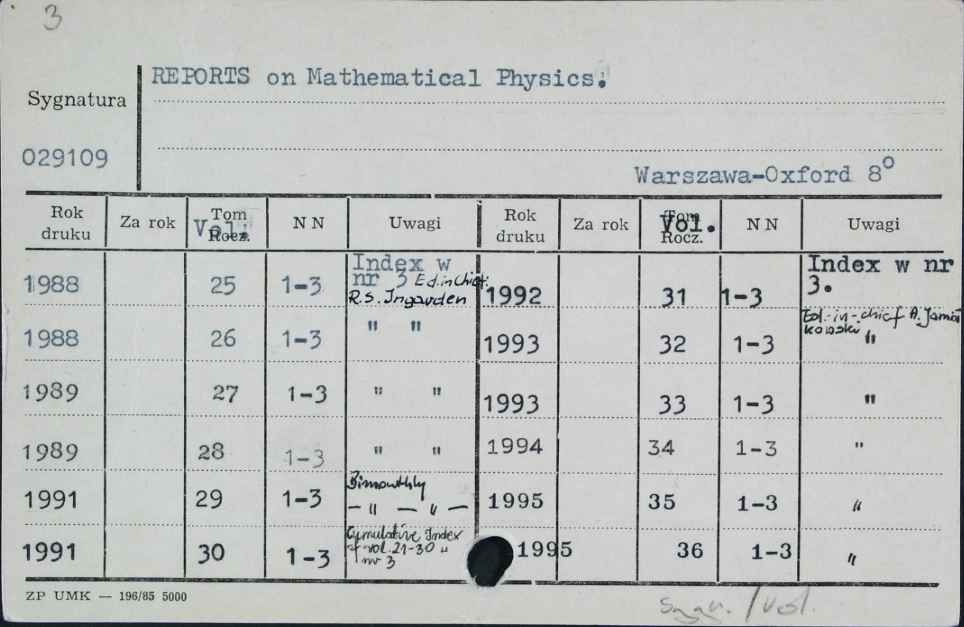 3
REPORTS on Mathematical Physics.
Sygnatura
029109
Warszawa-Oxford 8°
Rok druku Za rok Tom Rocz. Vol. NN Uwagi Rok druku Za rok Tom Rocz. Vol. NN Uwagi
1988 25 1-3 Index w nr 3 Ed.in Chief. R.S. Ingarden 1992 31 1-3 Index w nr 3. Ed.-in-chief A. Jamiołkowski
1988 26 1-3 " " 1993 32 1-3 "
1989 27 1-3 " " 1993 33 1-3 "
1989 28 1-3 " " 1994 34 1-3 "
1991 29 1-3 Bimonthly — " — " — 1995 35 1-3 "
1991 30 1-3 Cumulative Index of vol. 21-30 w nr 3 1995 36 1-3 "
ZP UMK — 196/85 5000
Sygn. / Vol.